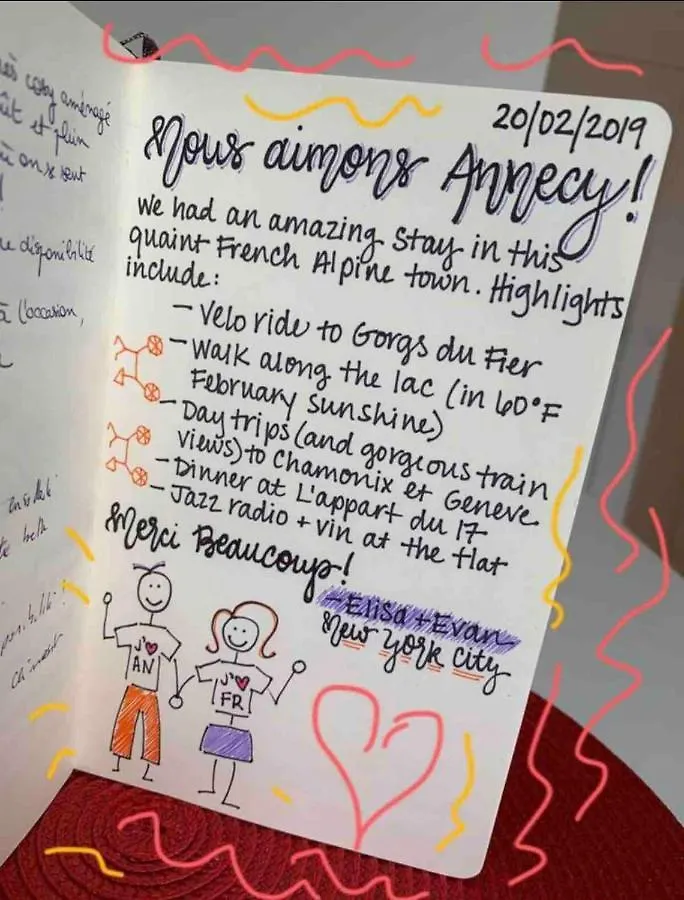 ès cosy aménagé
et plein
où on se sent
disponibilité
à l'occasion,
20/02/2019
Nous aimons Annecy!
We had an amazing stay in this
quaint French Alpine town. Highlights
include:
- Velo ride to Gorgs du Fier
- Walk along the lac (in 60°F
February Sunshine)
- Day trips (and gorgeous train
views) to Chamonix et Geneve
- Dinner at L'appart du 17
- Jazz radio + vin at the flat
Merci Beaucoup!
- Elisa + Evan -
New York City
J'♥
AN
J'♥
FR